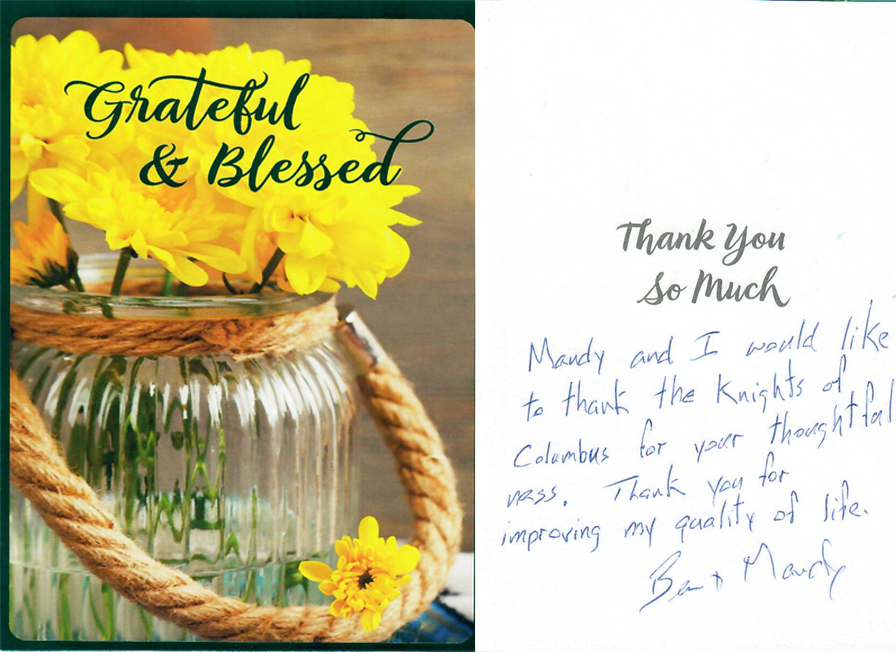 Grateful
& Blessed
Thank You
So Much
Mandy and I would like
to thank the Knights of
Columbus for your thoughtful
ness. Thank you for
improving my quality of life.
Ben + Mandy